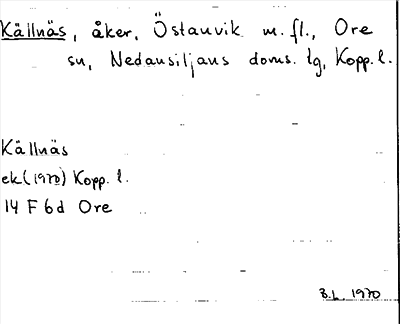 Källnäs, åker, Östanvik m. fl., Ore
sn, Nedansiljans doms. lg, Kopp. l.
Källnäs
ek (1970) Kopp. l.
14 F 6d Ore
B.L. 1970